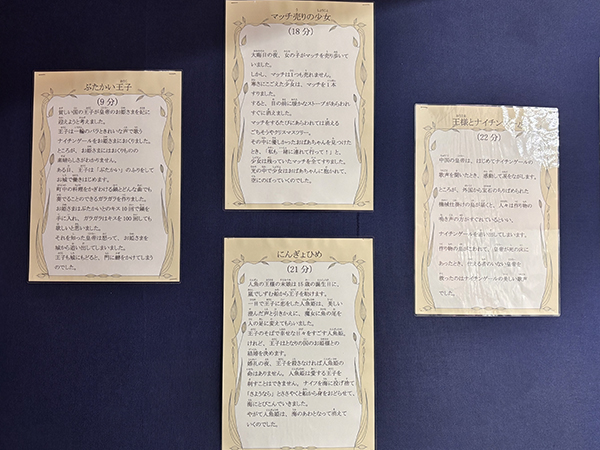 ぶたかい王子
(9分)
貧しい国の王子が皇帝のお姫さまを妃に
迎えようと考えました。
王子は一輪のバラときれいな声で歌う
ナイチンゲールをお姫さまにおくりました。
ところが、お姫さまにはおくりものの
素晴らしさがわかりません。
ある日、王子は「ぶたかい」のふりをして
お城で働きはじめます。
町中の料理をかぎわける鍋とどんな曲でも
奏でることのできるガラガラを作りました。
お姫さまはぶたかいとのキス10回で鍋を
手に入れ、ガラガラはキスを100回しても
欲しいと思いました。
それを知った皇帝は怒って、お姫さまを
城から追い出してしまいました。
王子も城にもどると、門に鍵をかけてしまう
のでした。
マッチ売りの少女
(18分)
大晦日の夜、女の子がマッチを売り歩いて
いました。
しかし、マッチは1つも売れません。
寒さにこごえた少女は、マッチを1本
すりました。
すると、目の前に暖かなストーブがあらわれ
すぐに消えます。
マッチをするたびにあらわれては消える
ごちそうやクリスマスツリー。
その中に優しかったおばあちゃんを見つけた
とき、「私も一緒に連れて行って！」と、
少女は残っていたマッチを全てすりました。
光の中で少女はおばあちゃんに抱かれて、
空にのぼっていくのでした。
にんぎょひめ
(21分)
人魚の王様の末娘は15歳の誕生日に、
嵐でしずむ船から王子を助けます。
一目で王子に恋をした人魚姫は、美しい
澄んだ声と引きかえに、魔女に魚の尾を
人の足に変えてもらいました。
王子のそばで幸せな日々をすごす人魚姫。
けれど、王子はとなりの国のお姫様との
結婚を決めます。
婚礼の夜、王子を殺さなければ人魚姫の
命はありません。人魚姫は愛する王子を
刺すことはできません。ナイフを海に投げ捨て
「さようなら」とささやくと船から身をおどらせて、
海にとびこんでいきました。
やがて人魚姫は、海のあわとなって消えて
いくのでした。
王様とナイチンゲール
(22分)
中国の皇帝は、はじめてナイチンゲールの
歌声を聞いたとき、感動して涙をながします。
ところが、外国から宝石のちりばめられた
機械仕掛けの鳥が届くと、人々は作り物の
鳴き声の方がすぐれているといい、
ナイチンゲールを追い出してしまいます。
作り物の鳥がこわれて、皇帝が死の床に
あったとき、
救ったのはナイチンゲールの美しい歌声
でした。